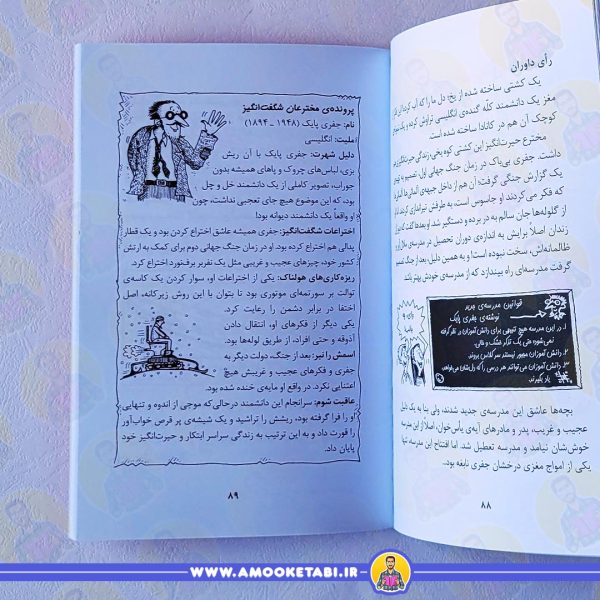 رأی داوران
یک کشتی ساخته شده از یخ، دل ما را که آب کرد! از نظر
مغز یک دانشمند کلّه گنده‌ی انگلیسی تراوش کرده و یک
کوچک آن هم در کانادا ساخته شده است
مخترع حیرت‌انگیز این کشتی کوه یخی، زندگی حیرت‌انگیزی
داشت. جفری بی‌باک در زمان جنگ جهانی اول، تصمیم
یک گزارش جنگی گرفت؛ آن هم از داخل جبهه‌ی آلمان‌ها! آلمانی‌ها
فکر می‌کردند او جاسوس است، به طرفش تیراندازی کردند
از گلوله‌ها جان سالم به در برده و دستگیر شد. او بعدها گفت که
زندان اصلاً برایش به اندازه‌ی دوران تحصیل در مدرسه‌ی
ظالمانه‌اش، سخت نبوده است و به همین دلیل، بعد از جنگ تصمیم
گرفت مدرسه‌ای راه بیندازد که از مدرسه‌ی خودش بهتر باشد.
قوانین مدرسه‌ی جدید
نوشته‌ی جفری پایک
۱. در این مدرسه هیچ تنبیهی برای دانش‌آموزان در نظر گرفته
نمی‌شود، حتی یک تذکر خشک و خالی.
۲. دانش‌آموزان مجبور نیستند سر کلاس بروند.
۳. دانش‌آموزان می‌توانند هر درسی را که دلشان می‌خواهد،
یاد بگیرند.
بچه‌ها عاشق این مدرسه‌ی جدید شدند، ولی بنا به یک دلیل
عجیب و غریب، پدر و مادرهای آیه‌ی یاس‌خوان، اصلاً از این مدرسه
خوش‌شان نیامد و مدرسه تعطیل شد. اما افتتاح این مدرسه تنها
یکی از امواج مغزی درخشان جفری نابغه بود...
۸۸
پرونده‌ی مخترعان شگفت‌انگیز
نام: جفری پایک (۱۹۴۸ - ۱۸۹۴)
ملیت: انگلیسی
دلیل شهرت: جفری پایک با آن ریش
بزی، لباس‌های چروک و پاهای همیشه بدون
جوراب، تصویر کاملی از یک دانشمند خل و چل
بود، که این موضوع هیچ جای تعجبی نداشت، چون
او واقعاً یک دانشمند دیوانه بود!
اختراعات شگفت‌انگیز: جفری همیشه عاشق اختراع کردن بود و یک قطار
پدالی هم اختراع کرده بود. او در زمان جنگ جهانی دوم برای کمک به ارتش
کشور خود، چیزهای عجیب و غریبی مثل یک نفربر برف‌نورد اختراع کرد.
ریزه‌کاری‌های هولناک: یکی از اختراعات او، سوار کردن یک کاسه‌ی
توالت بر سورتمه‌ای موتوری بود تا بتوان با این روش زیرکانه، اصل
اختفا در برابر دشمن را رعایت کرد.
یکی دیگر از فکرهای او، انتقال دادن
آذوقه و حتی افراد، از طریق لوله‌ها بود.
اسمش را نبر: بعد از جنگ، دولت دیگر به
جفری و فکرهای عجیب و غریبش هیچ
اعتنایی نکرد. در واقع او مایه‌ی خنده شده بود.
عاقبت شوم: سرانجام این دانشمند درحالی‌که موجی از اندوه و تنهایی
او را فرا گرفته بود، ریشش را تراشید و یک شیشه‌ی پر قرص خواب‌آور
را قورت داد و به این ترتیب به زندگی سراسر ابتکار و حیرت‌انگیز خود
پایان داد.
۸۹
WWW.AMOOKETABI.IR